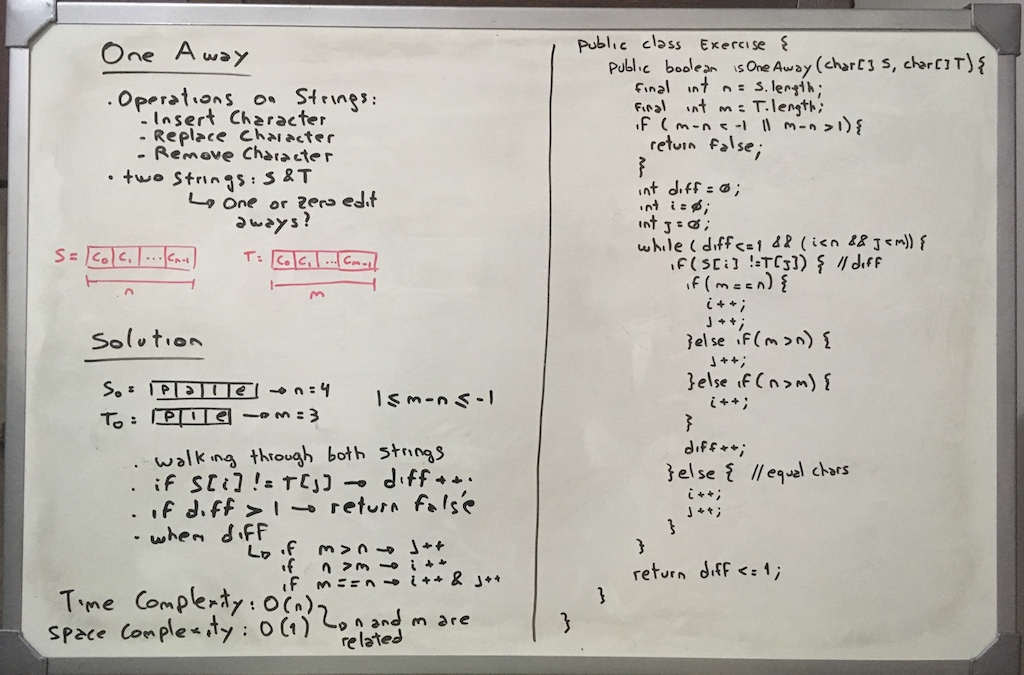 One Away
. Operations on Strings:
- Insert Character
- Replace Character
- Remove Character
. two Strings: S & T
↳ One or zero edit
aways?
S = C0 C1 ... Cn-1
n
T: C0 C1 ... Cm-1
m
Solution
S0 = p a l e → n = 4
T0 : p l e → m = 3
1 ≤ m-n ≤ -1
. walking through both strings
. if S[i] != T[j] → diff++.
. if diff > 1 → return false
. when diff
↳ if m>n → j++
if n>m → i++
if m==n → i++ & j++
Time Complexity: O(n)
Space Complexity: O(1)
↳ n and m are
related
Public class Exercise {
Public boolean isOneAway(char[] S, char[] T) {
final int n = S.length;
final int m = T.length;
if (m-n < -1 || m-n > 1) {
return false;
}
int diff = 0;
int i = 0;
int j = 0;
while (diff <= 1 && (i<n && j<m)) {
if (S[i] != T[j]) { // diff
if (m==n) {
i++;
j++;
}else if (m>n) {
j++;
}else if (n>m) {
i++;
}
diff++;
}else { // equal chars
i++;
j++;
}
}
return diff <= 1;
}
}